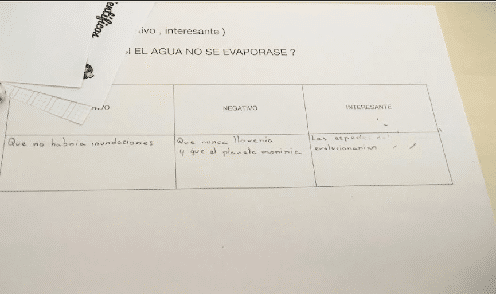 , interesante )
SI EL AGUA NO SE EVAPORASE ?
NEGATIVO
INTERESANTE
Que no habría inundaciones
Que nunca llovería
y que el planeta moriría
Las
evolucionarian